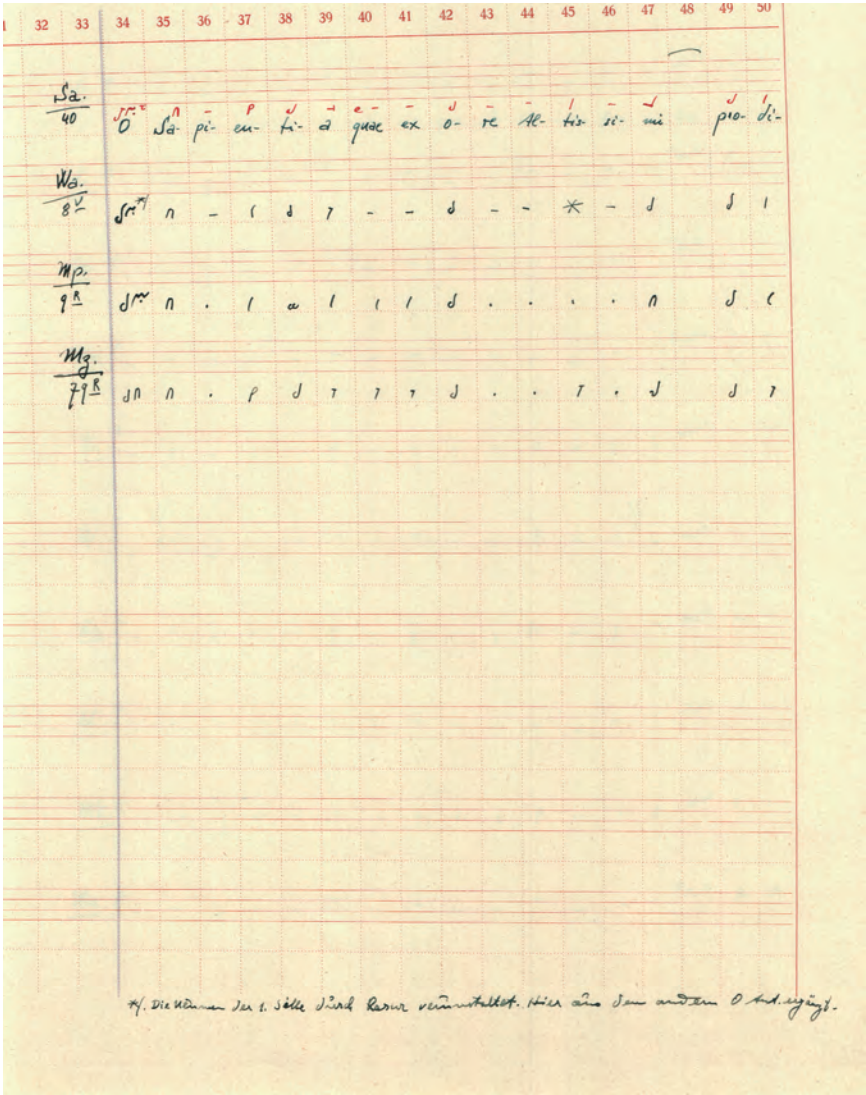 32 33 34 35 36 37 38 39 40 41 42 43 44 45 46 47 48 49 50
Sa.
40
O Sa- pi- en- ti- a quae ex o- re Al- tis- si- mi pro- di-
Wa.
8 V
Mp.
9 R
Mz.
79 R
*/. Die Neumen der 1. Silbe durch Rasur verunstaltet. Hier aus den andern O Ant. ergänzt.